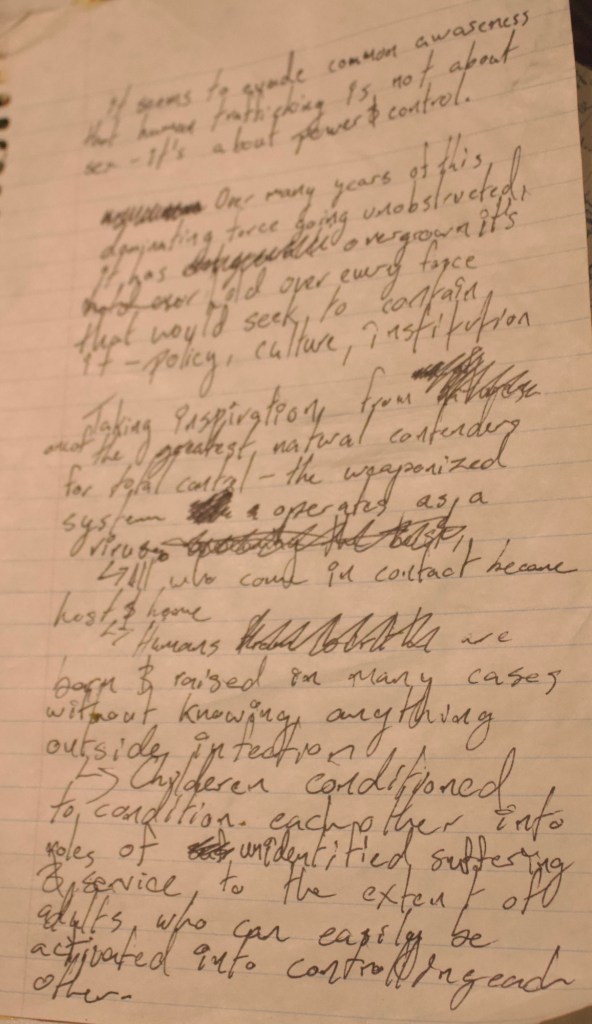 It seems to evade common awareness
that human trafficking is not about
sex - it's about power & control.
Over many years of this
dominating force going unobstructed,
it has overgrown it's
hold over every force
that would seek to contain
it - policy, culture, institution
Taking inspiration from
one of the greatest natural contenders
for total control - the weaponized
system operates as a
virus
↳ All who come in contact become
host & home
↳ Humans are
born & raised in many cases
without knowing anything
outside infection
↳ Childeren conditioned
to condition eachother into
roles of unidentified suffering
& service to the extent of
adults who can easily be
activated into controlling each
other.